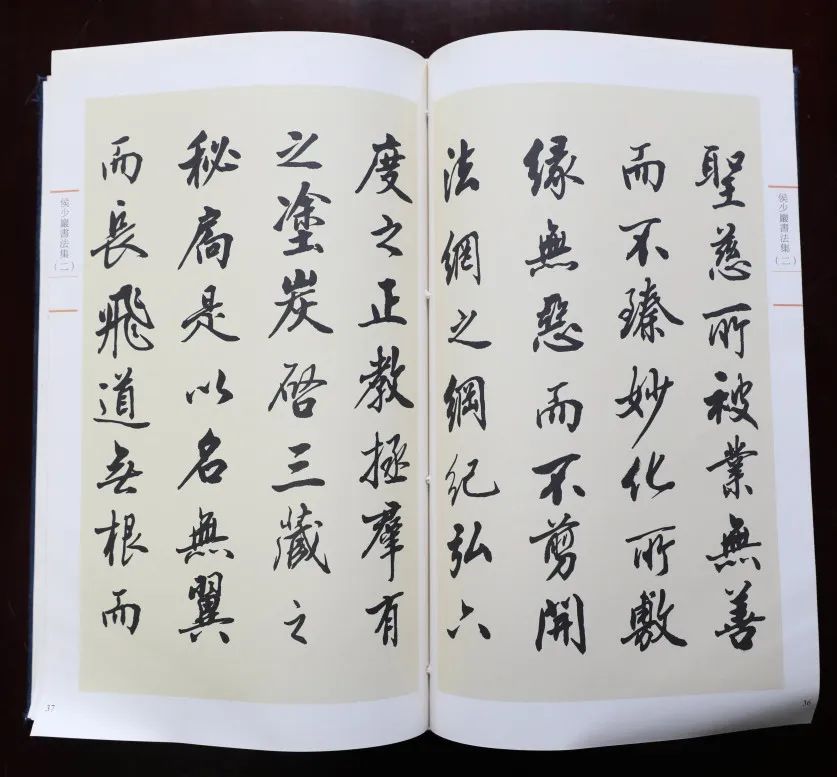 侯少巖書法集(二)
聖慈所被業無善
而不臻妙化所敷
緣無惡而不剪開
法網之綱紀弘六
36
度之正教拯羣有
之塗炭啓三藏之
秘扃是以名無翼
而長飛道無根而
侯少巖書法集(二)
37